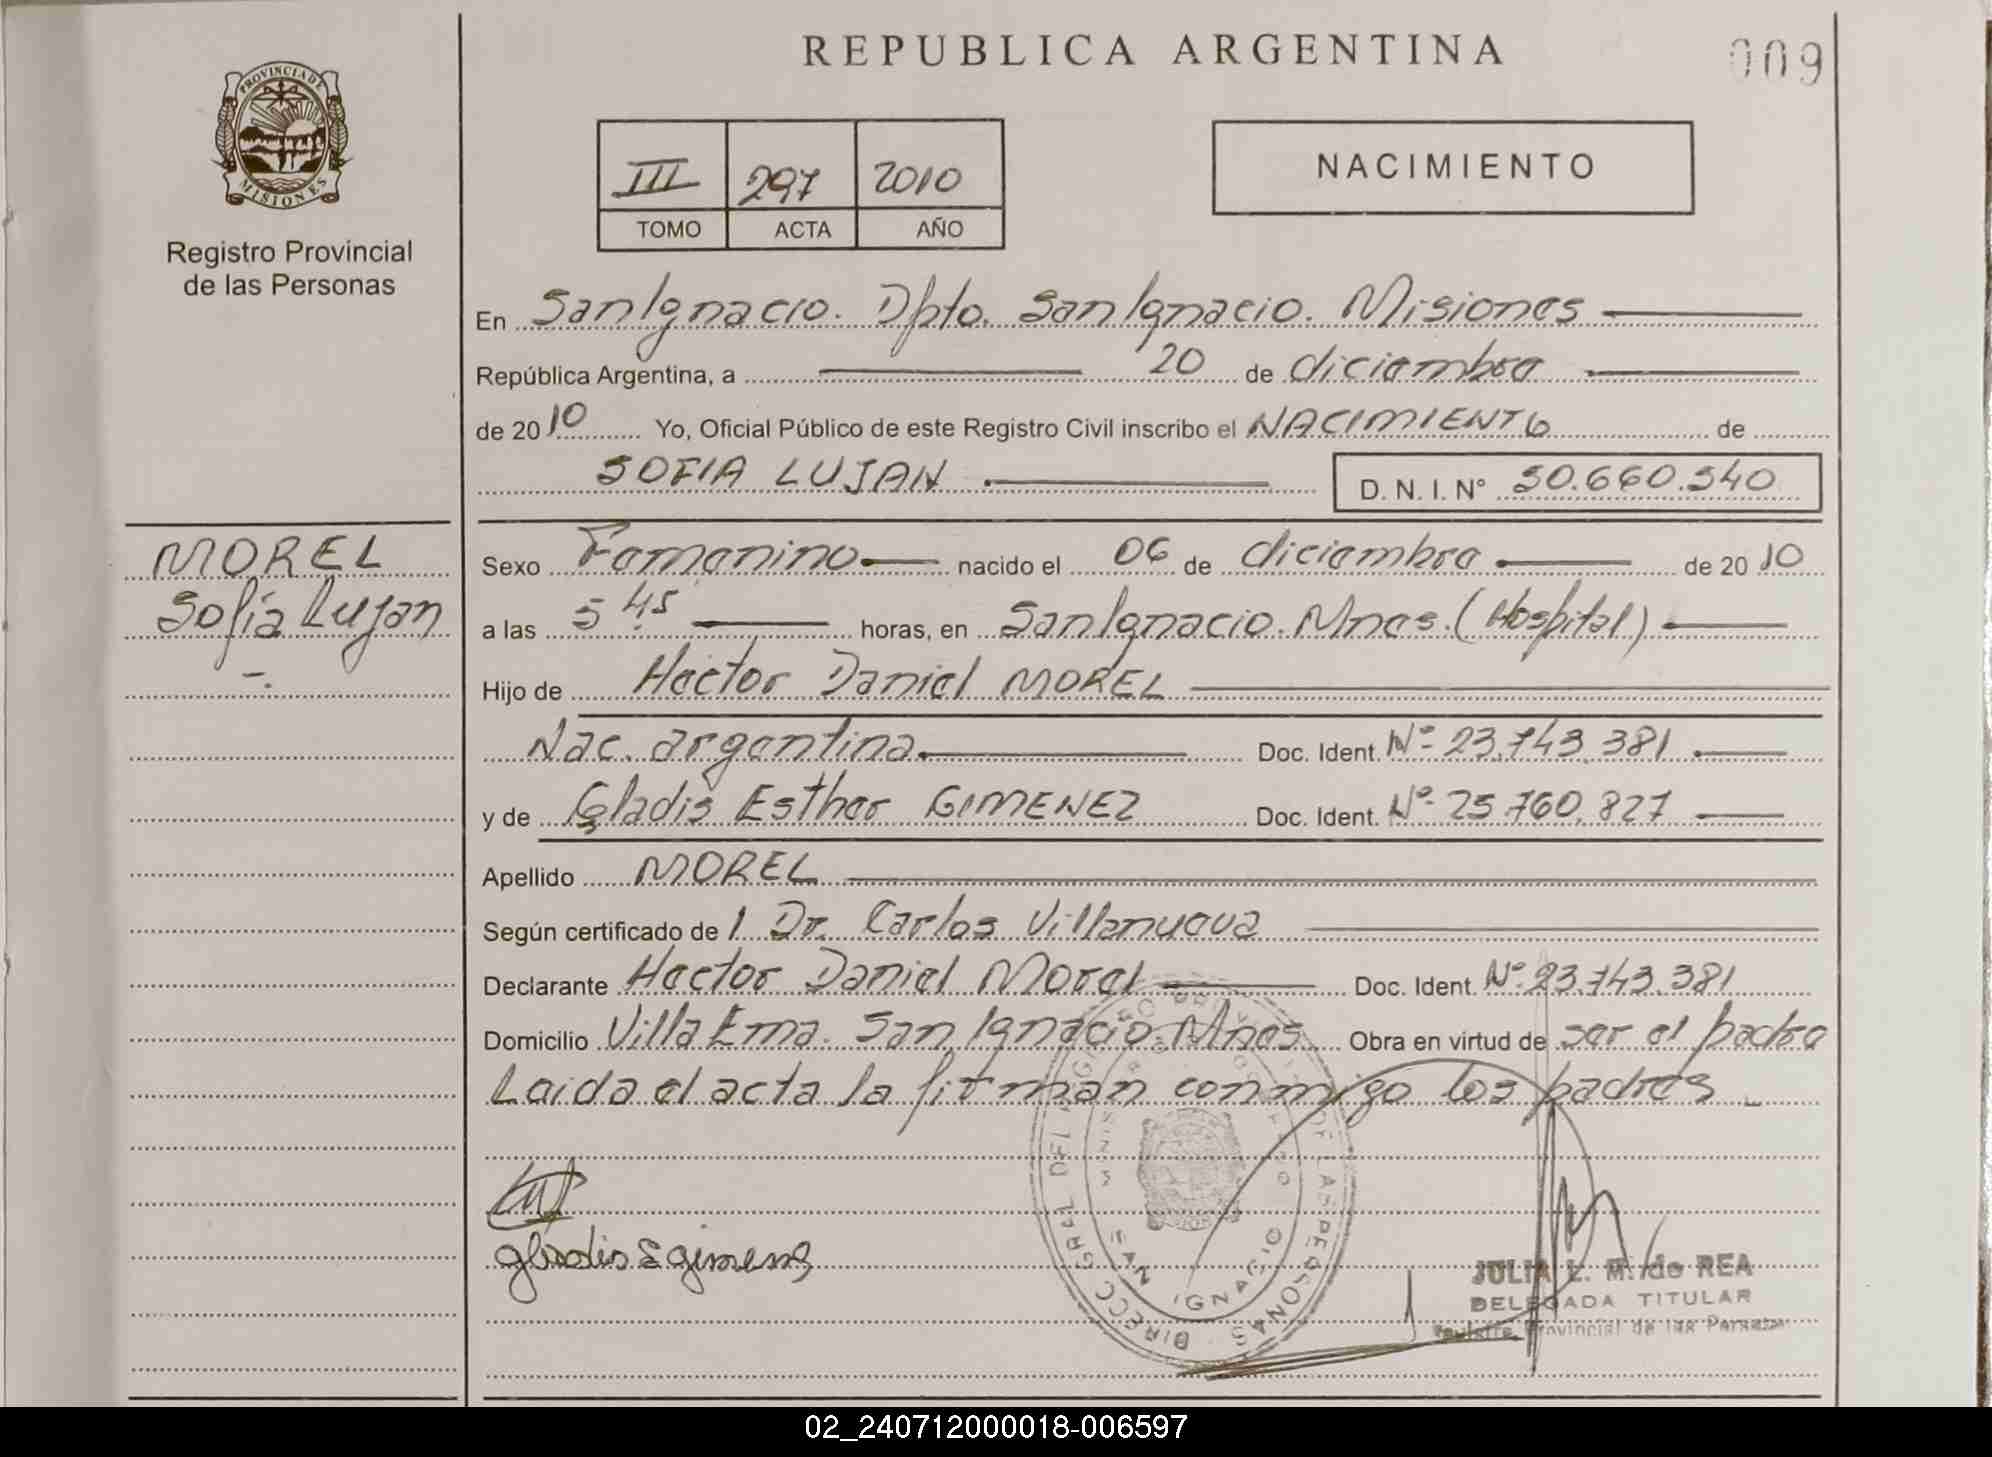 REPUBLICA ARGENTINA
009
PROVINCIA DE
MISIONES
Registro Provincial
de las Personas
III 297 2010
TOMO ACTA AÑO
NACIMIENTO
En San Ignacio. Dpto. San Ignacio. Misiones
República Argentina, a 20 de diciembre
de 2010 Yo, Oficial Público de este Registro Civil inscribo el NACIMIENTO de
SOFIA LUJAN D. N. I. Nº 50.660.540
MOREL
Sofía Lujan
Sexo Femenino nacido el 06 de diciembre de 2010
a las 5 45 horas, en San Ignacio. Mnes. (Hospital)
Hijo de Hector Daniel MOREL
Nac. argentina Doc. Ident. Nº 23.743.381
y de Gladis Esther GIMENEZ Doc. Ident. Nº 25.760.827
Apellido MOREL
Según certificado de l Dr. Carlos Villanueva
Declarante Hector Daniel Morel Doc. Ident. Nº 23.743.381
Domicilio Villa Ema. San Ignacio. Mnes Obra en virtud de ser el padre
Leida el acta la firman conmigo los padres
Gladis E gimenez
DIRECC GRAL DEL REGISTRO PROVINCIAL DE LAS PERSONAS
SAN IGNACIO
JULIA L. M. de REA
DELEGADA TITULAR
Registro Provincial de las Personas
02_240712000018-006597